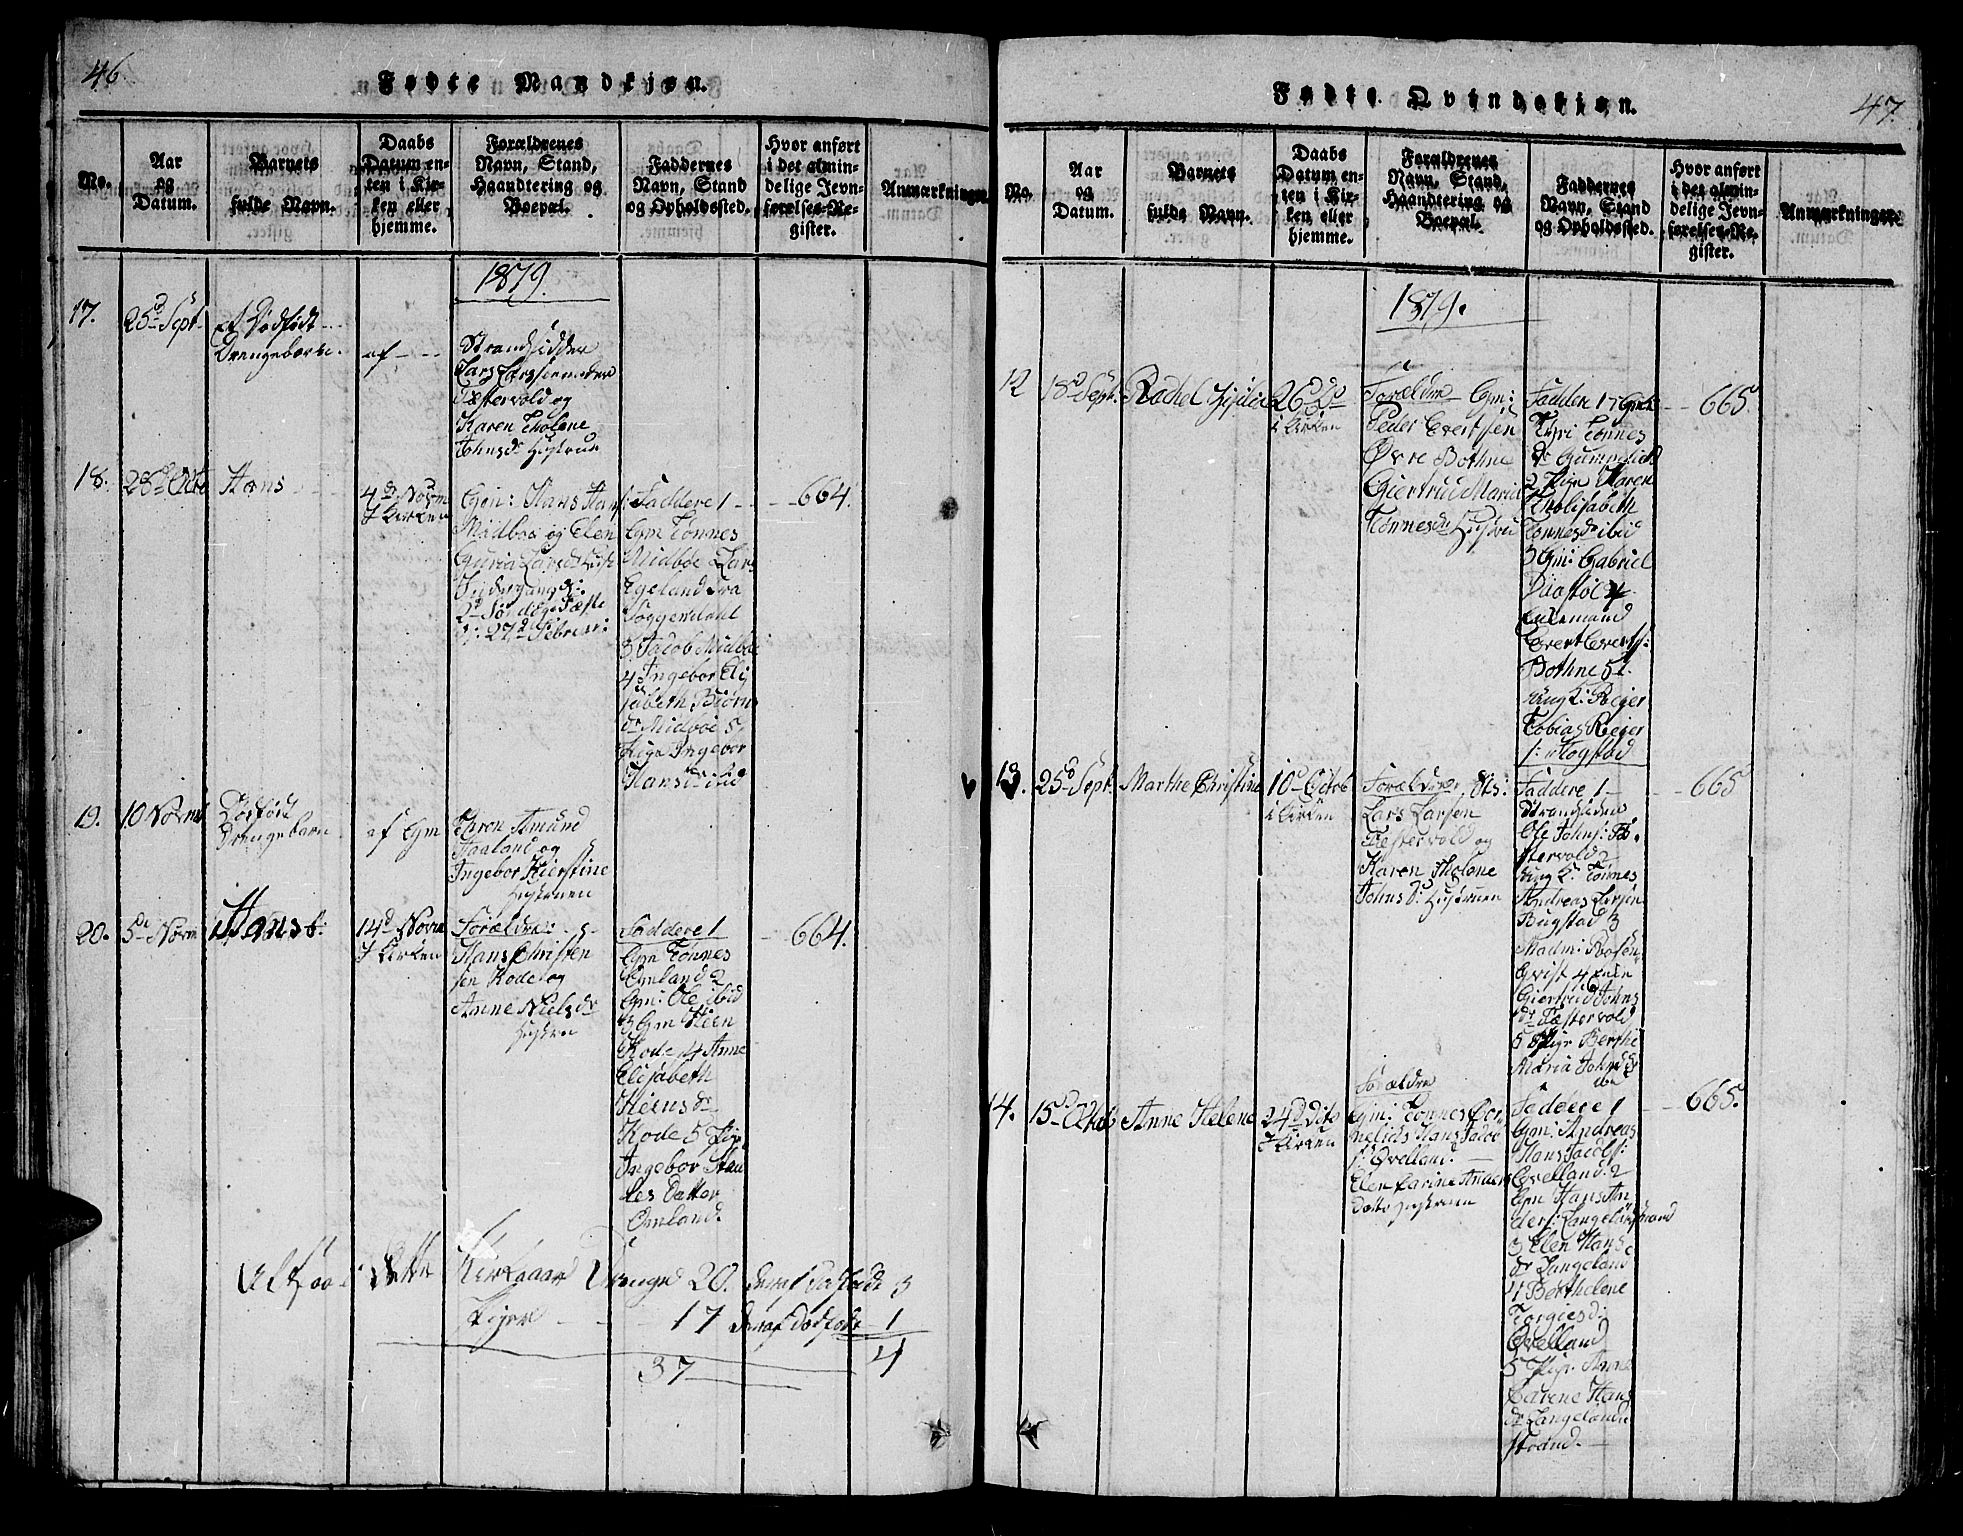 46
Fødte Mandkjøn.
No.
Aar
og
Datum.
Barnets
fulde Navn.
Daabs
Datum en-
ten i Kir-
ken eller
hjemme.
Forældrenes
Navn, Stand,
Haandtering og
Boepæl.
Faddernes
Navn, Stand
og Opholdssted.
Hvor anført
i det almin-
delige Jevn-
førelses-Re-
gister.
Anmærkninger.
1879.
17.
25d Sept
et Dødfødt
Drengebarn.
af
Strandsidder
Lars Larssen
Fæstervold og
Karen Tholene
Johnsdr Hustrue
18.
28d Octo
Hans
4de Novm
I Kirken
Gm: Hans Hans
Midboe og Elen
Guria Larsd
2d Søndag i Faste
27d Februar:
Faddere 1
Gm Tønnes
Midboe Lars
Egeland fra
Soggendahl
3 Jacob Midboe
4 Ingebor Eli
sabeth Biørn
dr Midboe 5
Pige Ingebor
Hansdr ibid
664.
19.
10 Novm
Dødfødt
Drengebarn
af Gm
Taron Amund
Haaland og
Ingebor Kierstine
Hustruen
20.
5d Novm
Hans
14d Novm
I Kirken
Forældre:
Hans Christen
sen Kode og
Anne Nielsdr
Hustrue
Faddere 1
Gm Tønnes
Omland 2
Gm: Ole ibid
3 Gm Hein
Kode 4 Anne
Elisabeth
Heinsdr
Kode 5 Pige
Ingebor
Datter
Omland.
664.
Kirkgaar Drenge 20. deraf Dødfødt 3
Piger 17 deraf Dødfødt 1
37 4
Fødte Qvindekjøn.
47.
No.
Aar
og
Datum.
Barnets
fulde Navn.
Daabs
Datum en-
ten i Kir-
ken eller
hjemme.
Forældrenes
Navn, Stand,
Haandtering og
Boepæl.
Faddernes
Navn, Stand
og Opholdssted.
Hvor anført
i det almin-
delige Jevn-
førelses-Re-
gister.
Anmærkninger.
1879.
12
18d Sept.
Rachel
26d Do
i Kirken
Forældre Gm:
Peder Evertsen
Øvre Bothne
Giertrud Maria
Tønnesdr Hustru
Faddere 1
Tønnes
dr
2 Pige Karen
Tholisabeth
Tønnesdr ibid
3 Gm: Gabriel
4
Evert Everts:
Bothne 5
Ung K: Reier
Tobias Reier
s: Rogstad
665
13.
25d Sept.
Marthe Christine
10d Octob
i Kirken
Forældre
Lars Larsen
Fæstervold og
Karen Tholene
Johnsd: Hustruen
Faddere 1
Strandsidder
Ole Johns: Fæ-
stervold 2
Ung K: Tønnes
Andreas Larsen
Bugstad 3
Madm: Rosen
qvist 4
Giertrud Johns
dr Fæstervold
5 Pige Berthe
Maria Johnsdr
ibid
665
14.
15d Octob
Anne Helene
24d Dito
I Kirken
Forældre
Gm: Tønnes Cor
nelius Hans Jacob
s: Øvelland.
Elen Carine Anders
Datter Hustruen
Faddere 1
Gm: Andreas
Hans Jacobs:
Øvelland: 2
Gm Hans An
ders: Langelandstrand
3 Elen Hans
dr Langeland
4 Berthelene
Torgiersd:
Øvelland
5 Pige Anne
Carine Hans
dr Langelands
strand.
665.